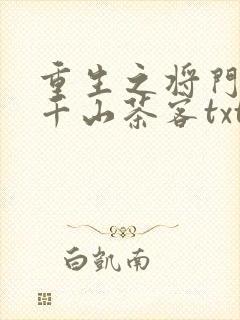 重生之将門
千山茶客txt
白凱南